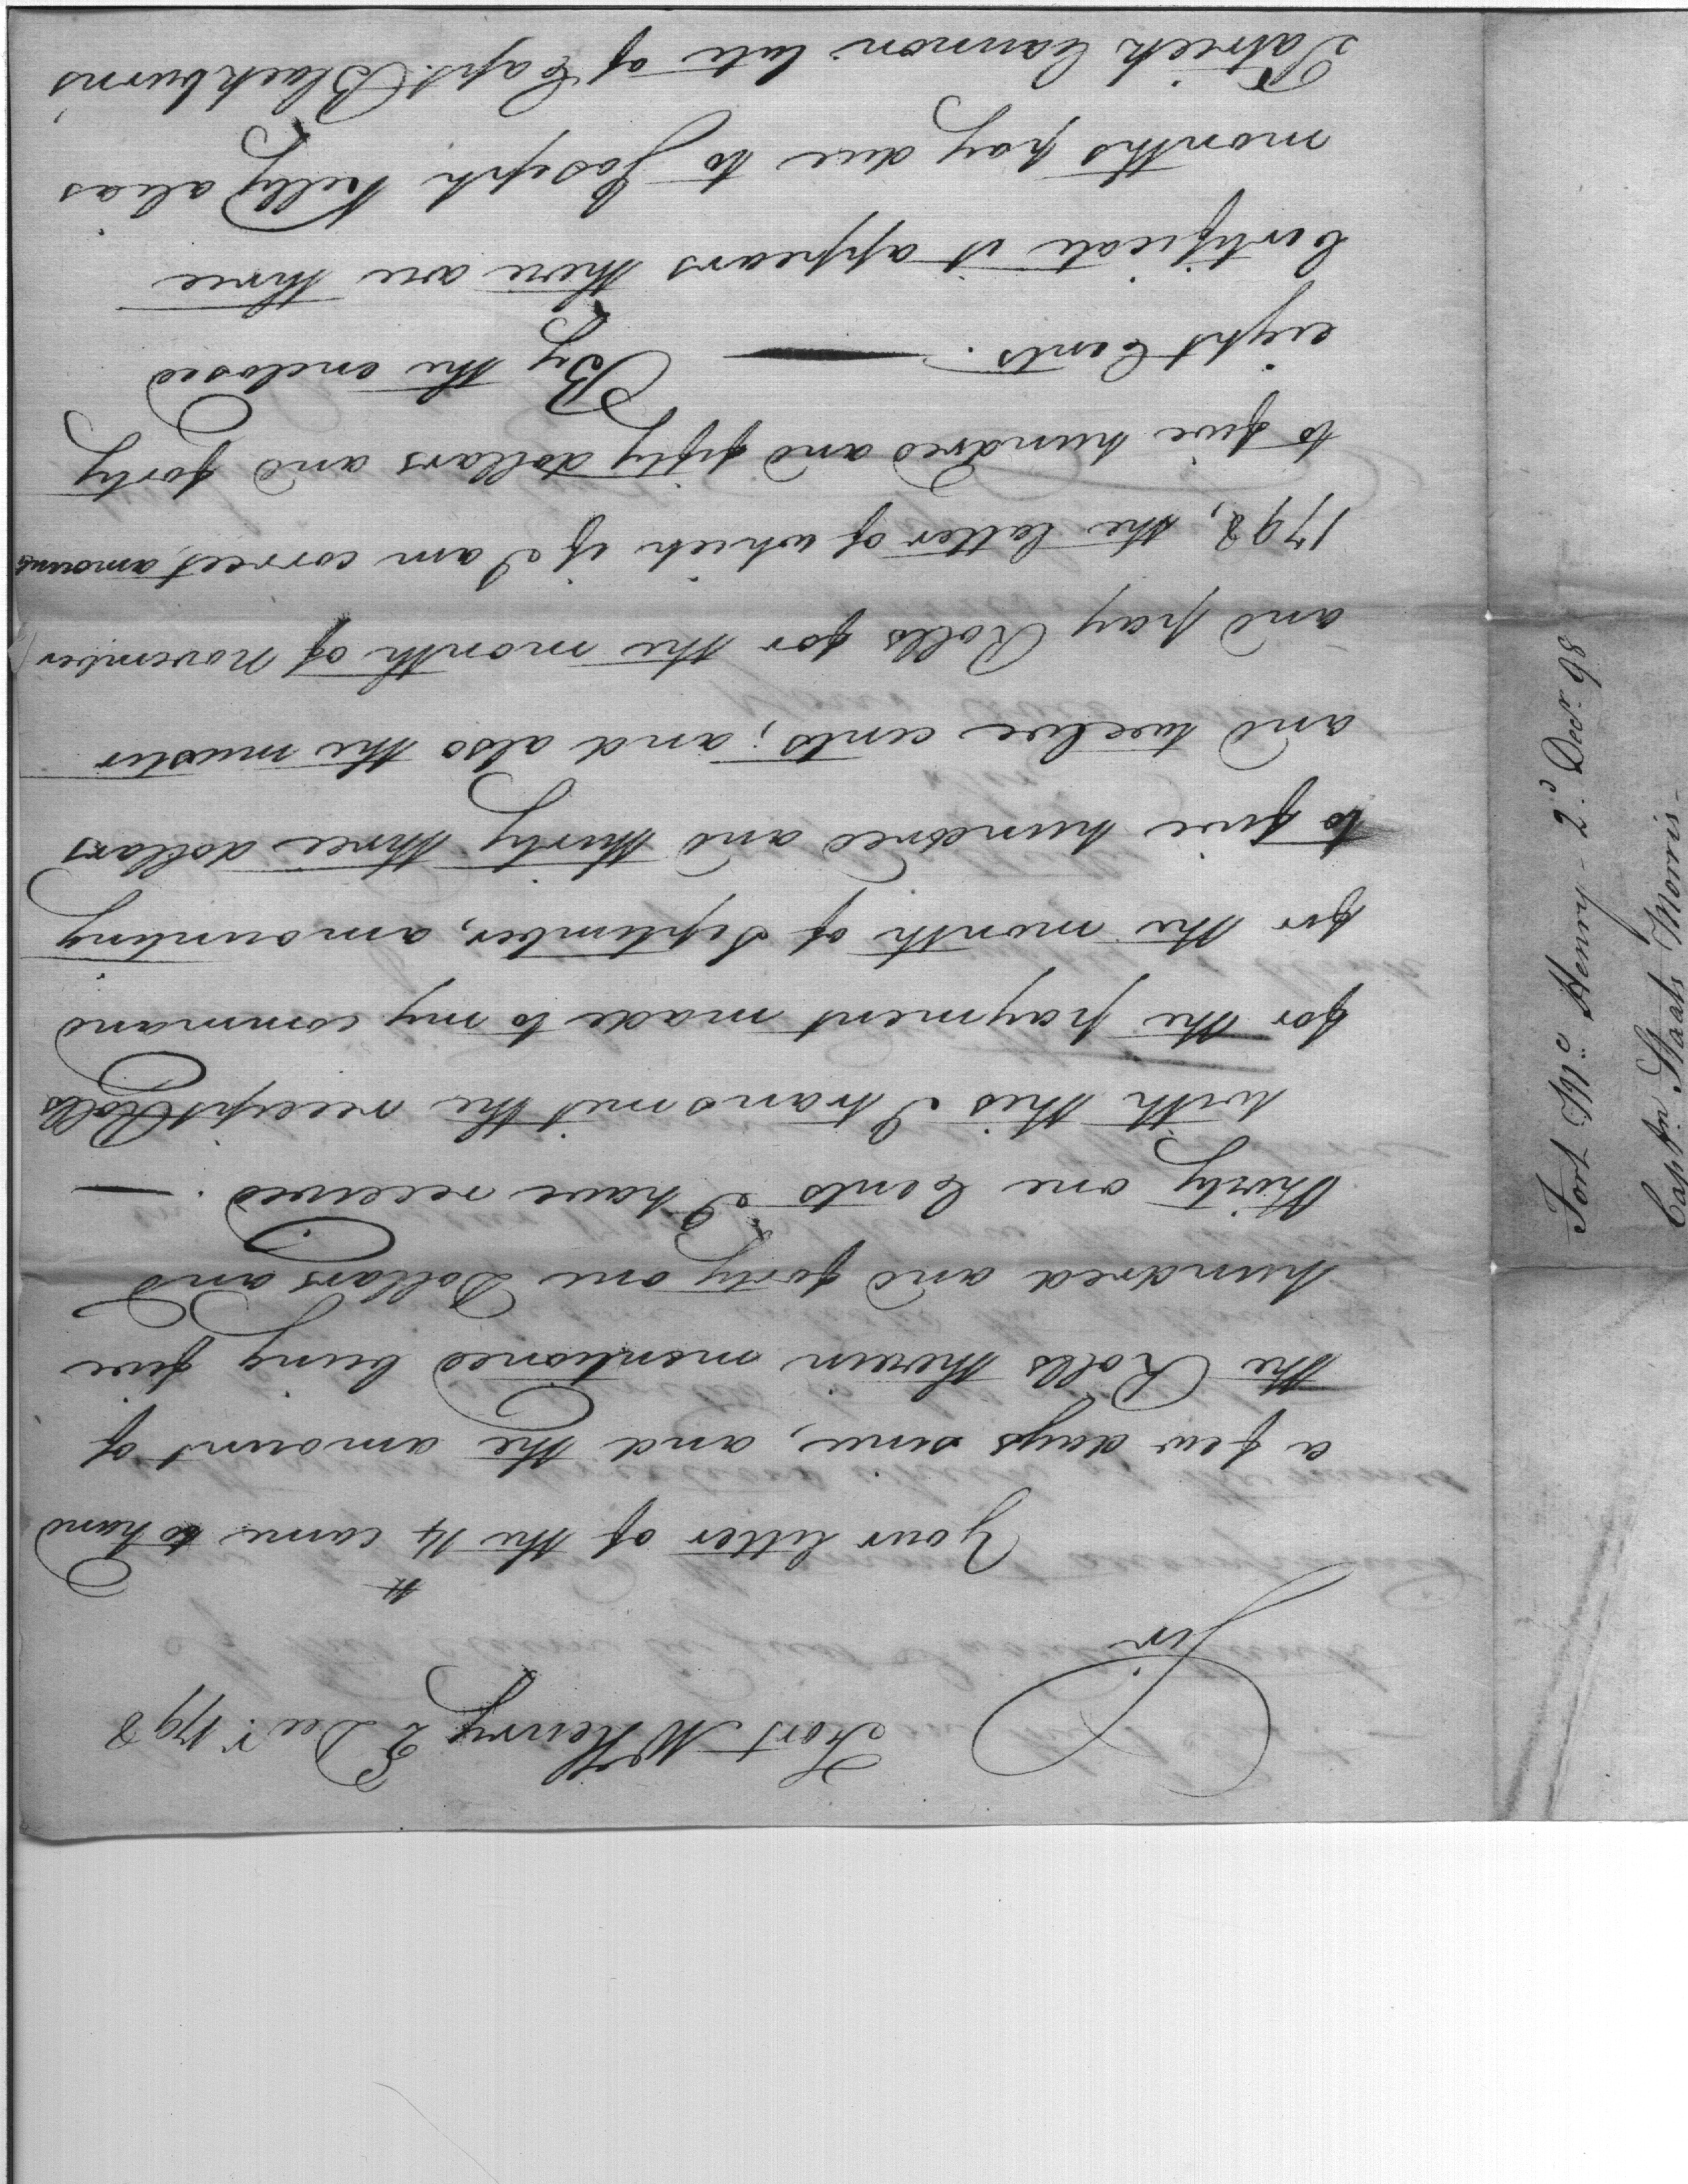 Fort McHenry 2 Decr. 1798
Sir
Your letter of the 14th came to hand
a few days since, and the amount of
the Rolls therein mentioned being five
hundred and forty one Dollars and
thirty one Cents I have received. —
With this I transmit the receipt Rolls
for the payment made to my command
for the month of September, amounting
to five hundred and thirty three dollars
and twelve cents; and also the muster
and pay Rolls for the month of November
1798, the latter of which if I am correct, amounts
to five hundred and fifty dollars and forty
eight Cents. — By the enclosed
Certificate it appears there are three
months pay due to Joseph Kelly alias
Patrick Cannon late of Capt. Blackburns
Fort Mc. Henry - 2d. Decr. 98
Captn. Staats Morris -